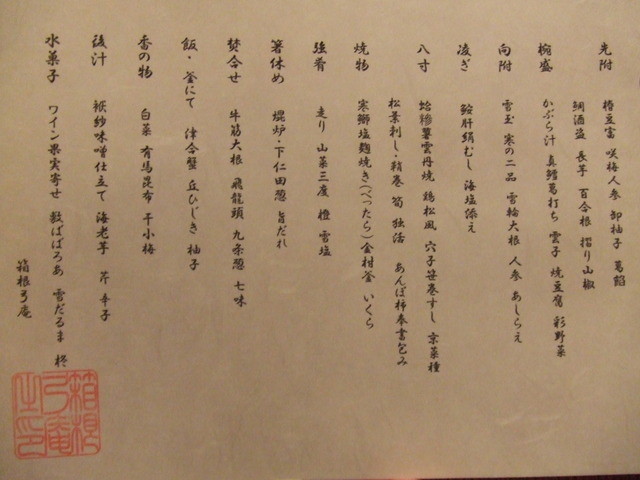 先附 椿豆富 咲梅人参 卸柚子 葛餡
鯛酒盗 長芋 百合根 摺り山椒
椀盛 かぶら汁 真鱈葛打ち 雲子 焼豆腐 彩野菜
向附 雪玉 寒の二品 雪輪大根 人参 あしらえ
凌ぎ 鮟肝絹むし 海塩添え
八寸 蛤糝薯雲丹焼 鶏松風 穴子笹巻すし 京菜種
松葉刺し・鞘巻 筍 独活 あんぽ柿奉書包み
焼物 寒鰤塩麹焼き(べったら)金柑釜 いくら
強肴 走り 山菜三度 橙 雪塩
箸休め 焜炉・下仁田葱 旨だれ
焚合せ 牛筋大根 飛龍頭 九条葱 七味
飯・釜にて 津合蟹 丘ひじき 柚子
香の物 白菜 有馬昆布 干小梅
後汁 袱紗味噌仕立て 海老芋 芹 辛子
水菓子 ワイン果実寄せ 数ばばろあ 雪だるま 柊
箱根弓庵
箱根
弓庵
之印